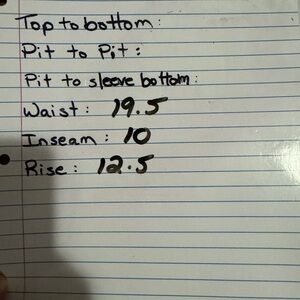 Top to bottom:
Pit to Pit:
Pit to sleeve bottom:
Waist: 19.5
Inseam: 10
Rise: 12.5